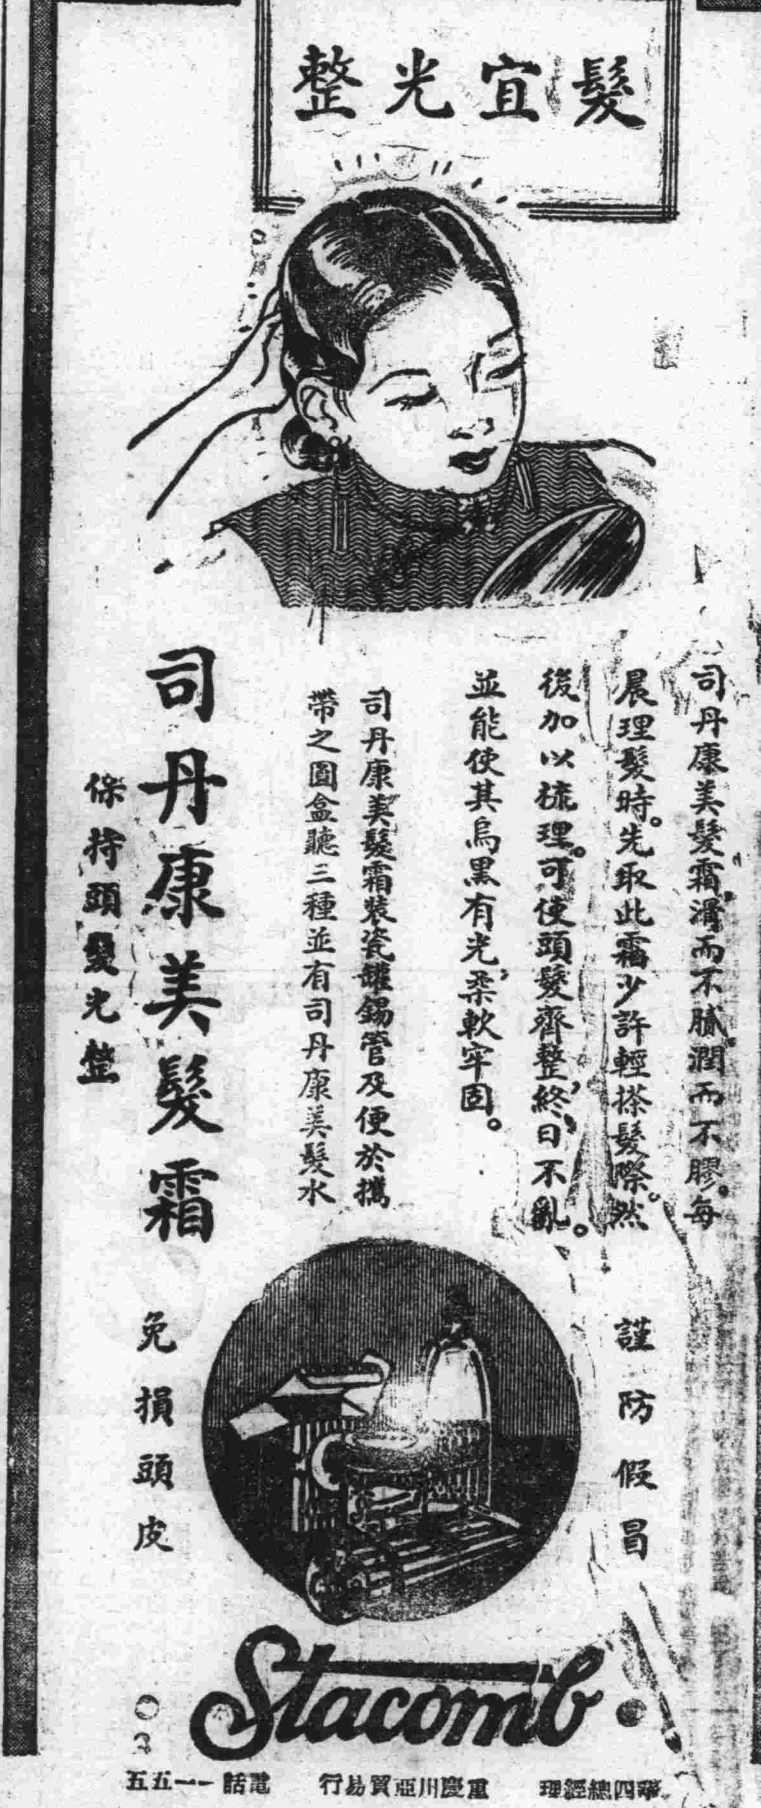 髮宜光整
司丹康美髮霜滑而不膩。潤而不膠。每
晨理髮時。先取此霜少許輕搽髮際。然
後加以梳理。可使頭髮齊整、終日不亂。
並能使其烏黑有光、柔軟牢固。
司丹康美髮霜裝瓷罐錫管及便於攜
帶之圓盒聽三種並有司丹康美髮水
司丹康美髮霜
保持頭髮光整
謹防假冒
免損頭皮
Stacomb
華四總經理 重慶川亞貿易行 電話一一五五